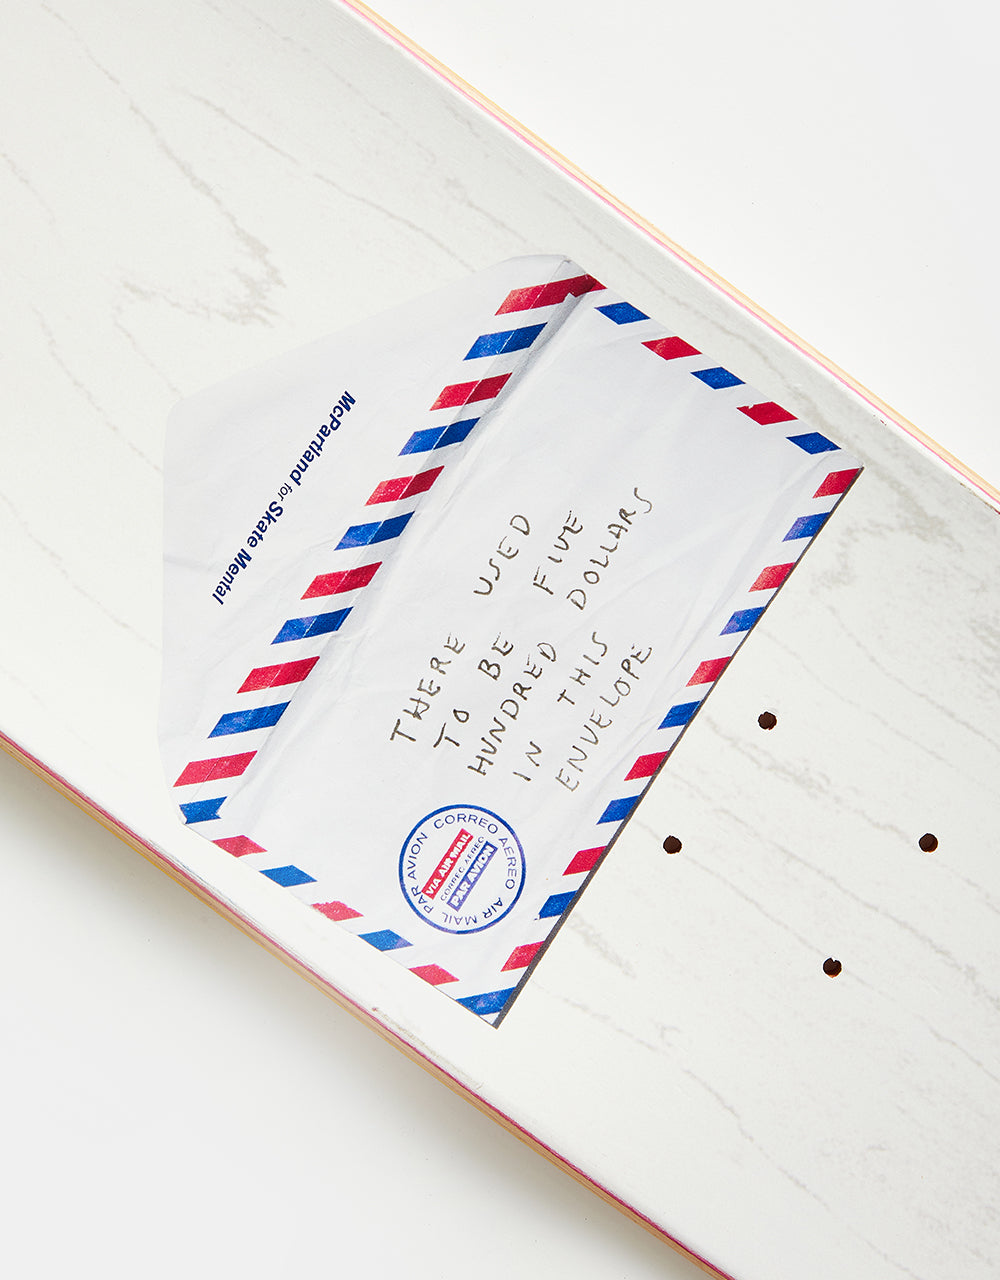 McPartland for Skate Mental
THERE USED
TO BE FIVE
HUNDRED DOLLARS
IN THIS
ENVELOPE
PAR AVION CORREO AEREO AIR MAIL
VIA AIR MAIL
CORREO AEREO
PAR AVION